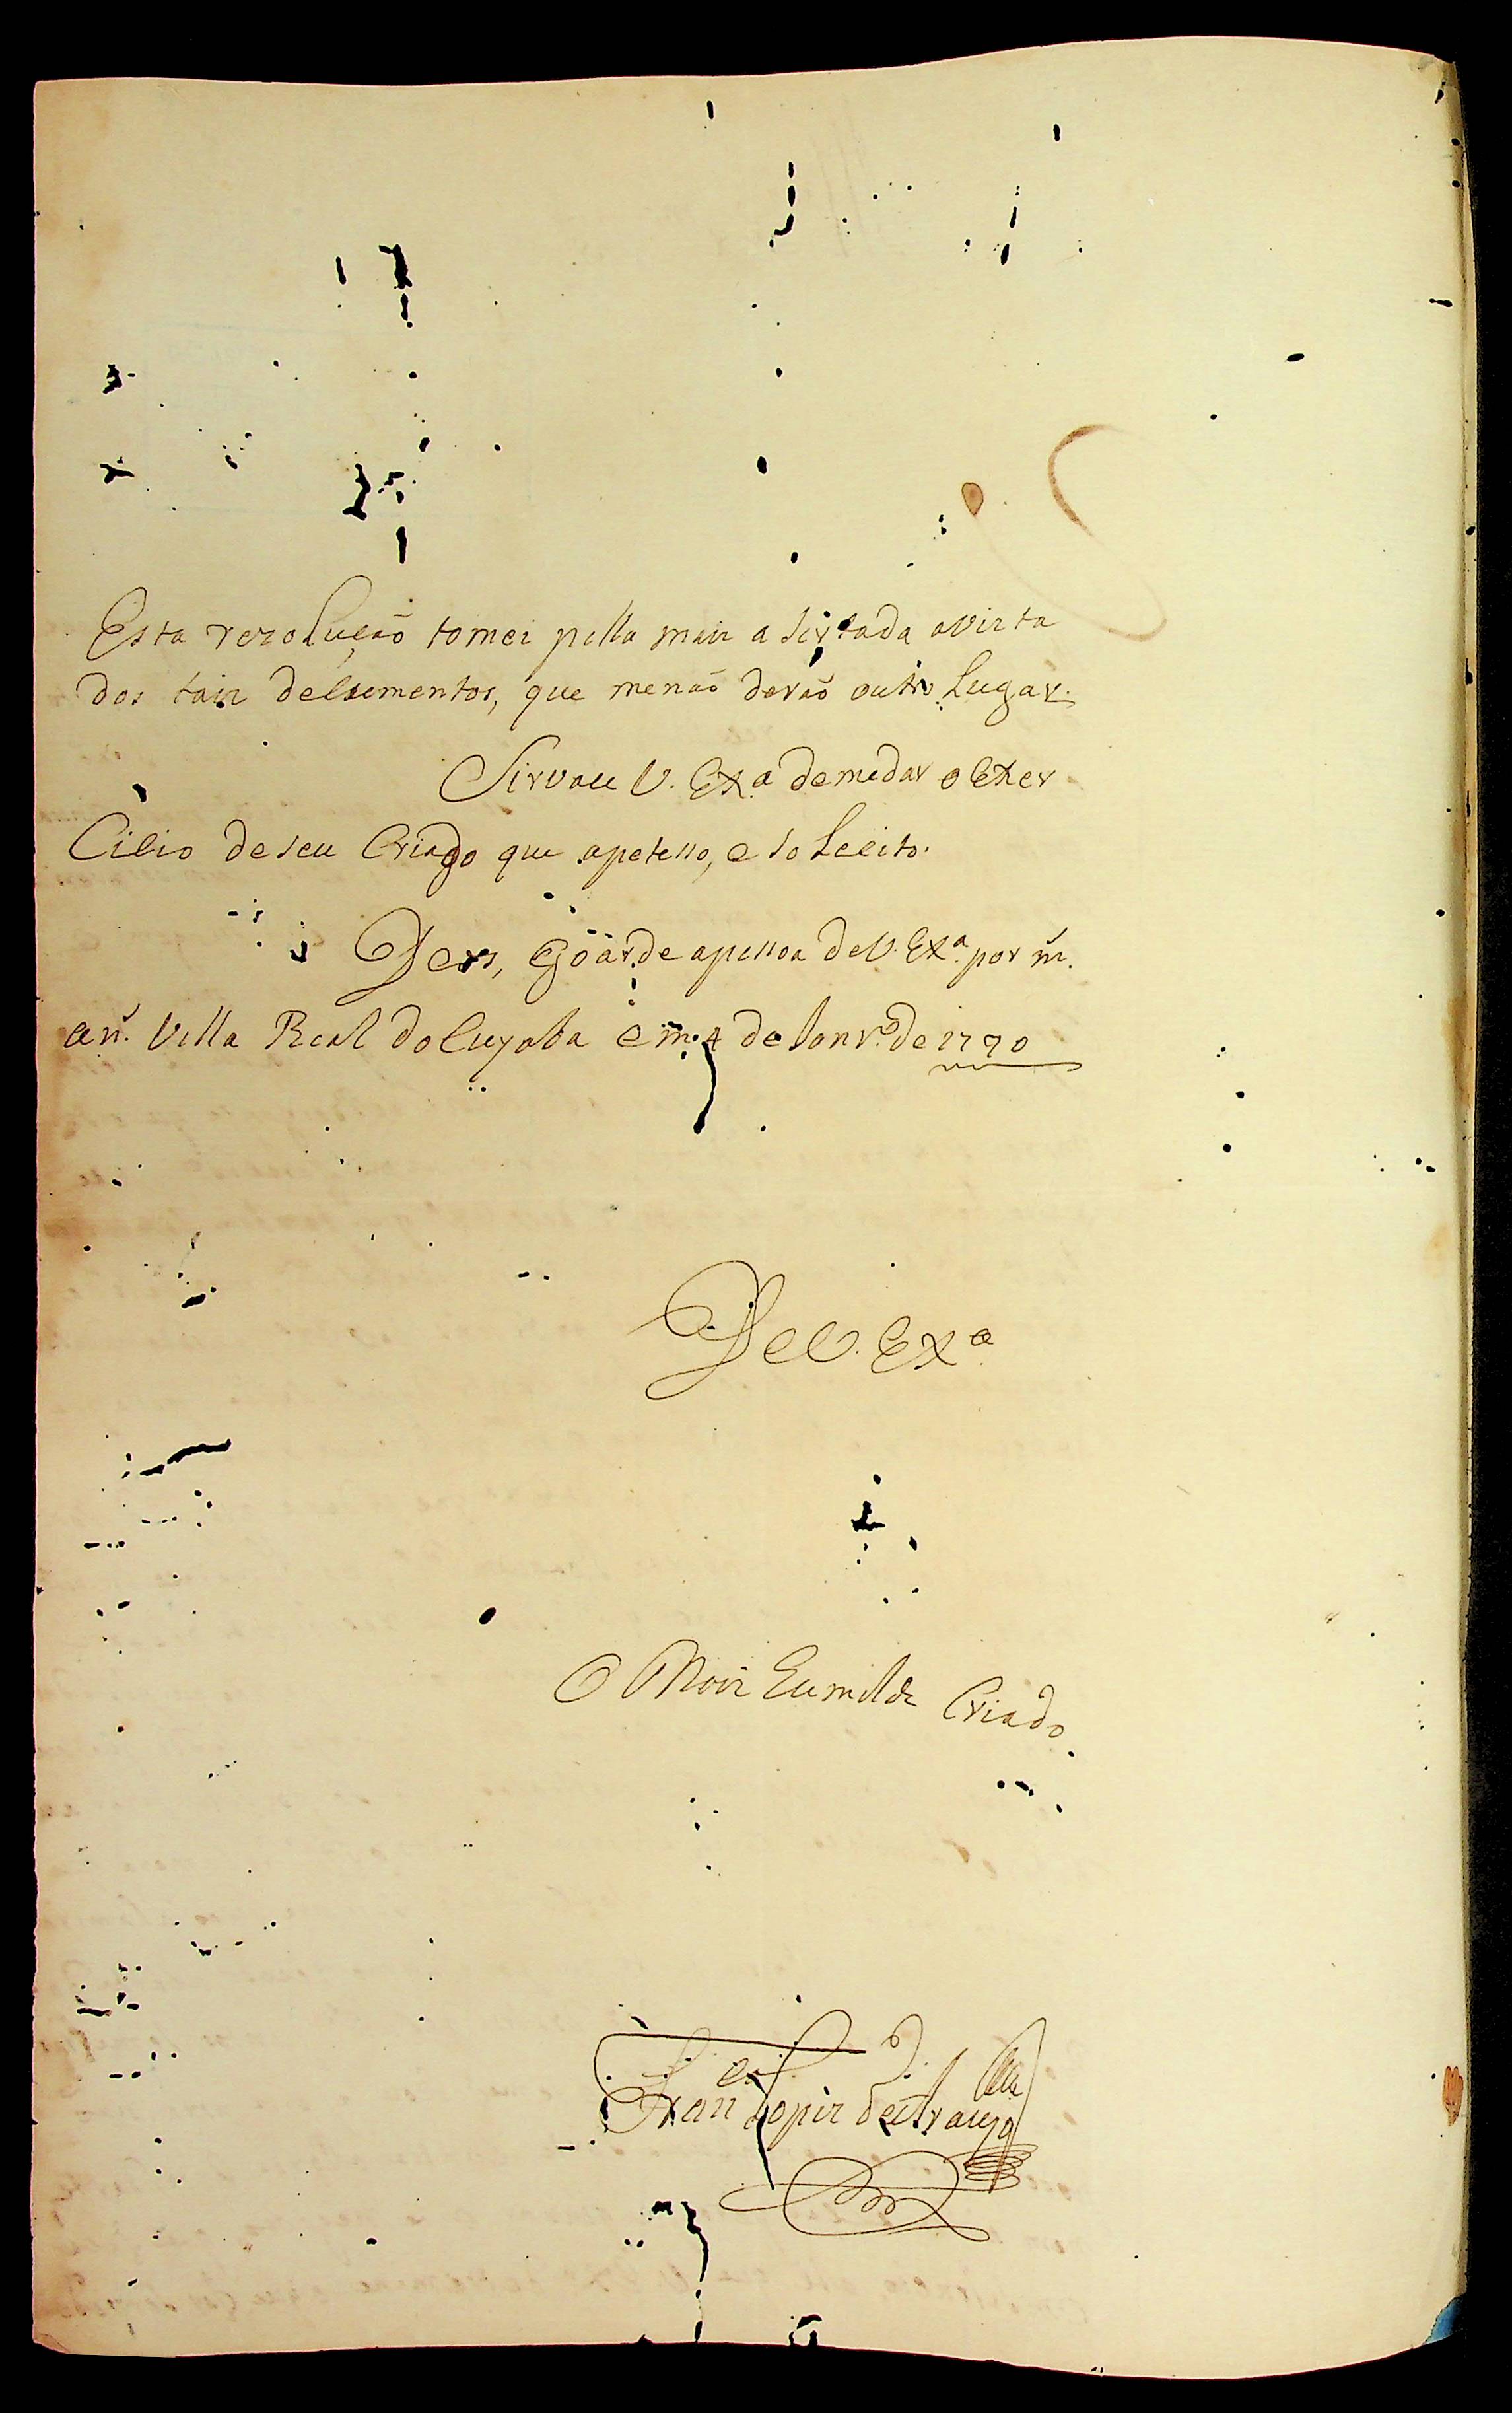 Esta rezolução tomei pella mais a sertada avista
dos tais docomentos, que menão derão outro Lugar.
Sirvase V. Exª demedar o Exer
Cicio de seu Criado que apetesso, e so Lecito.
Deos, Goarde apessoa deV. Exª por m.
an. Villa Real do Cuyaba em 4 de Janrº de 1770
DeV. Exª
O Mais Eumilde Criado
Franco Lopes deAraujo